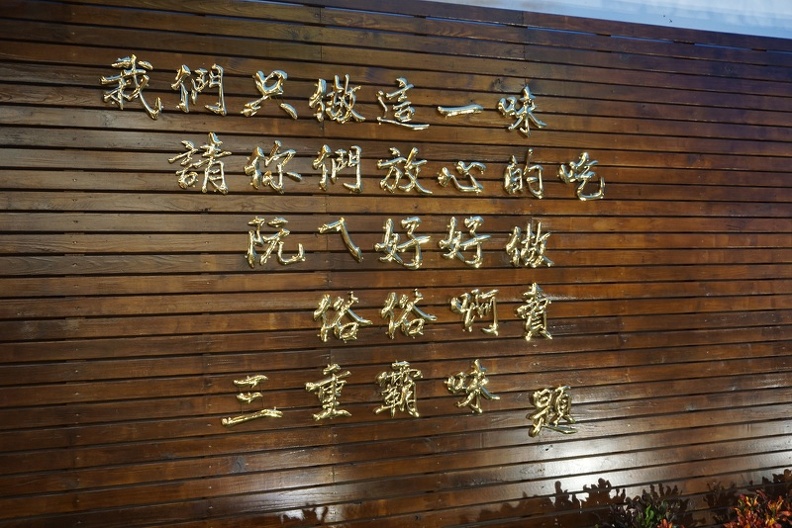 我們只做這一味
請你們放心的吃
阮ㄟ好好做
俗俗啊賣
三重霸味 題